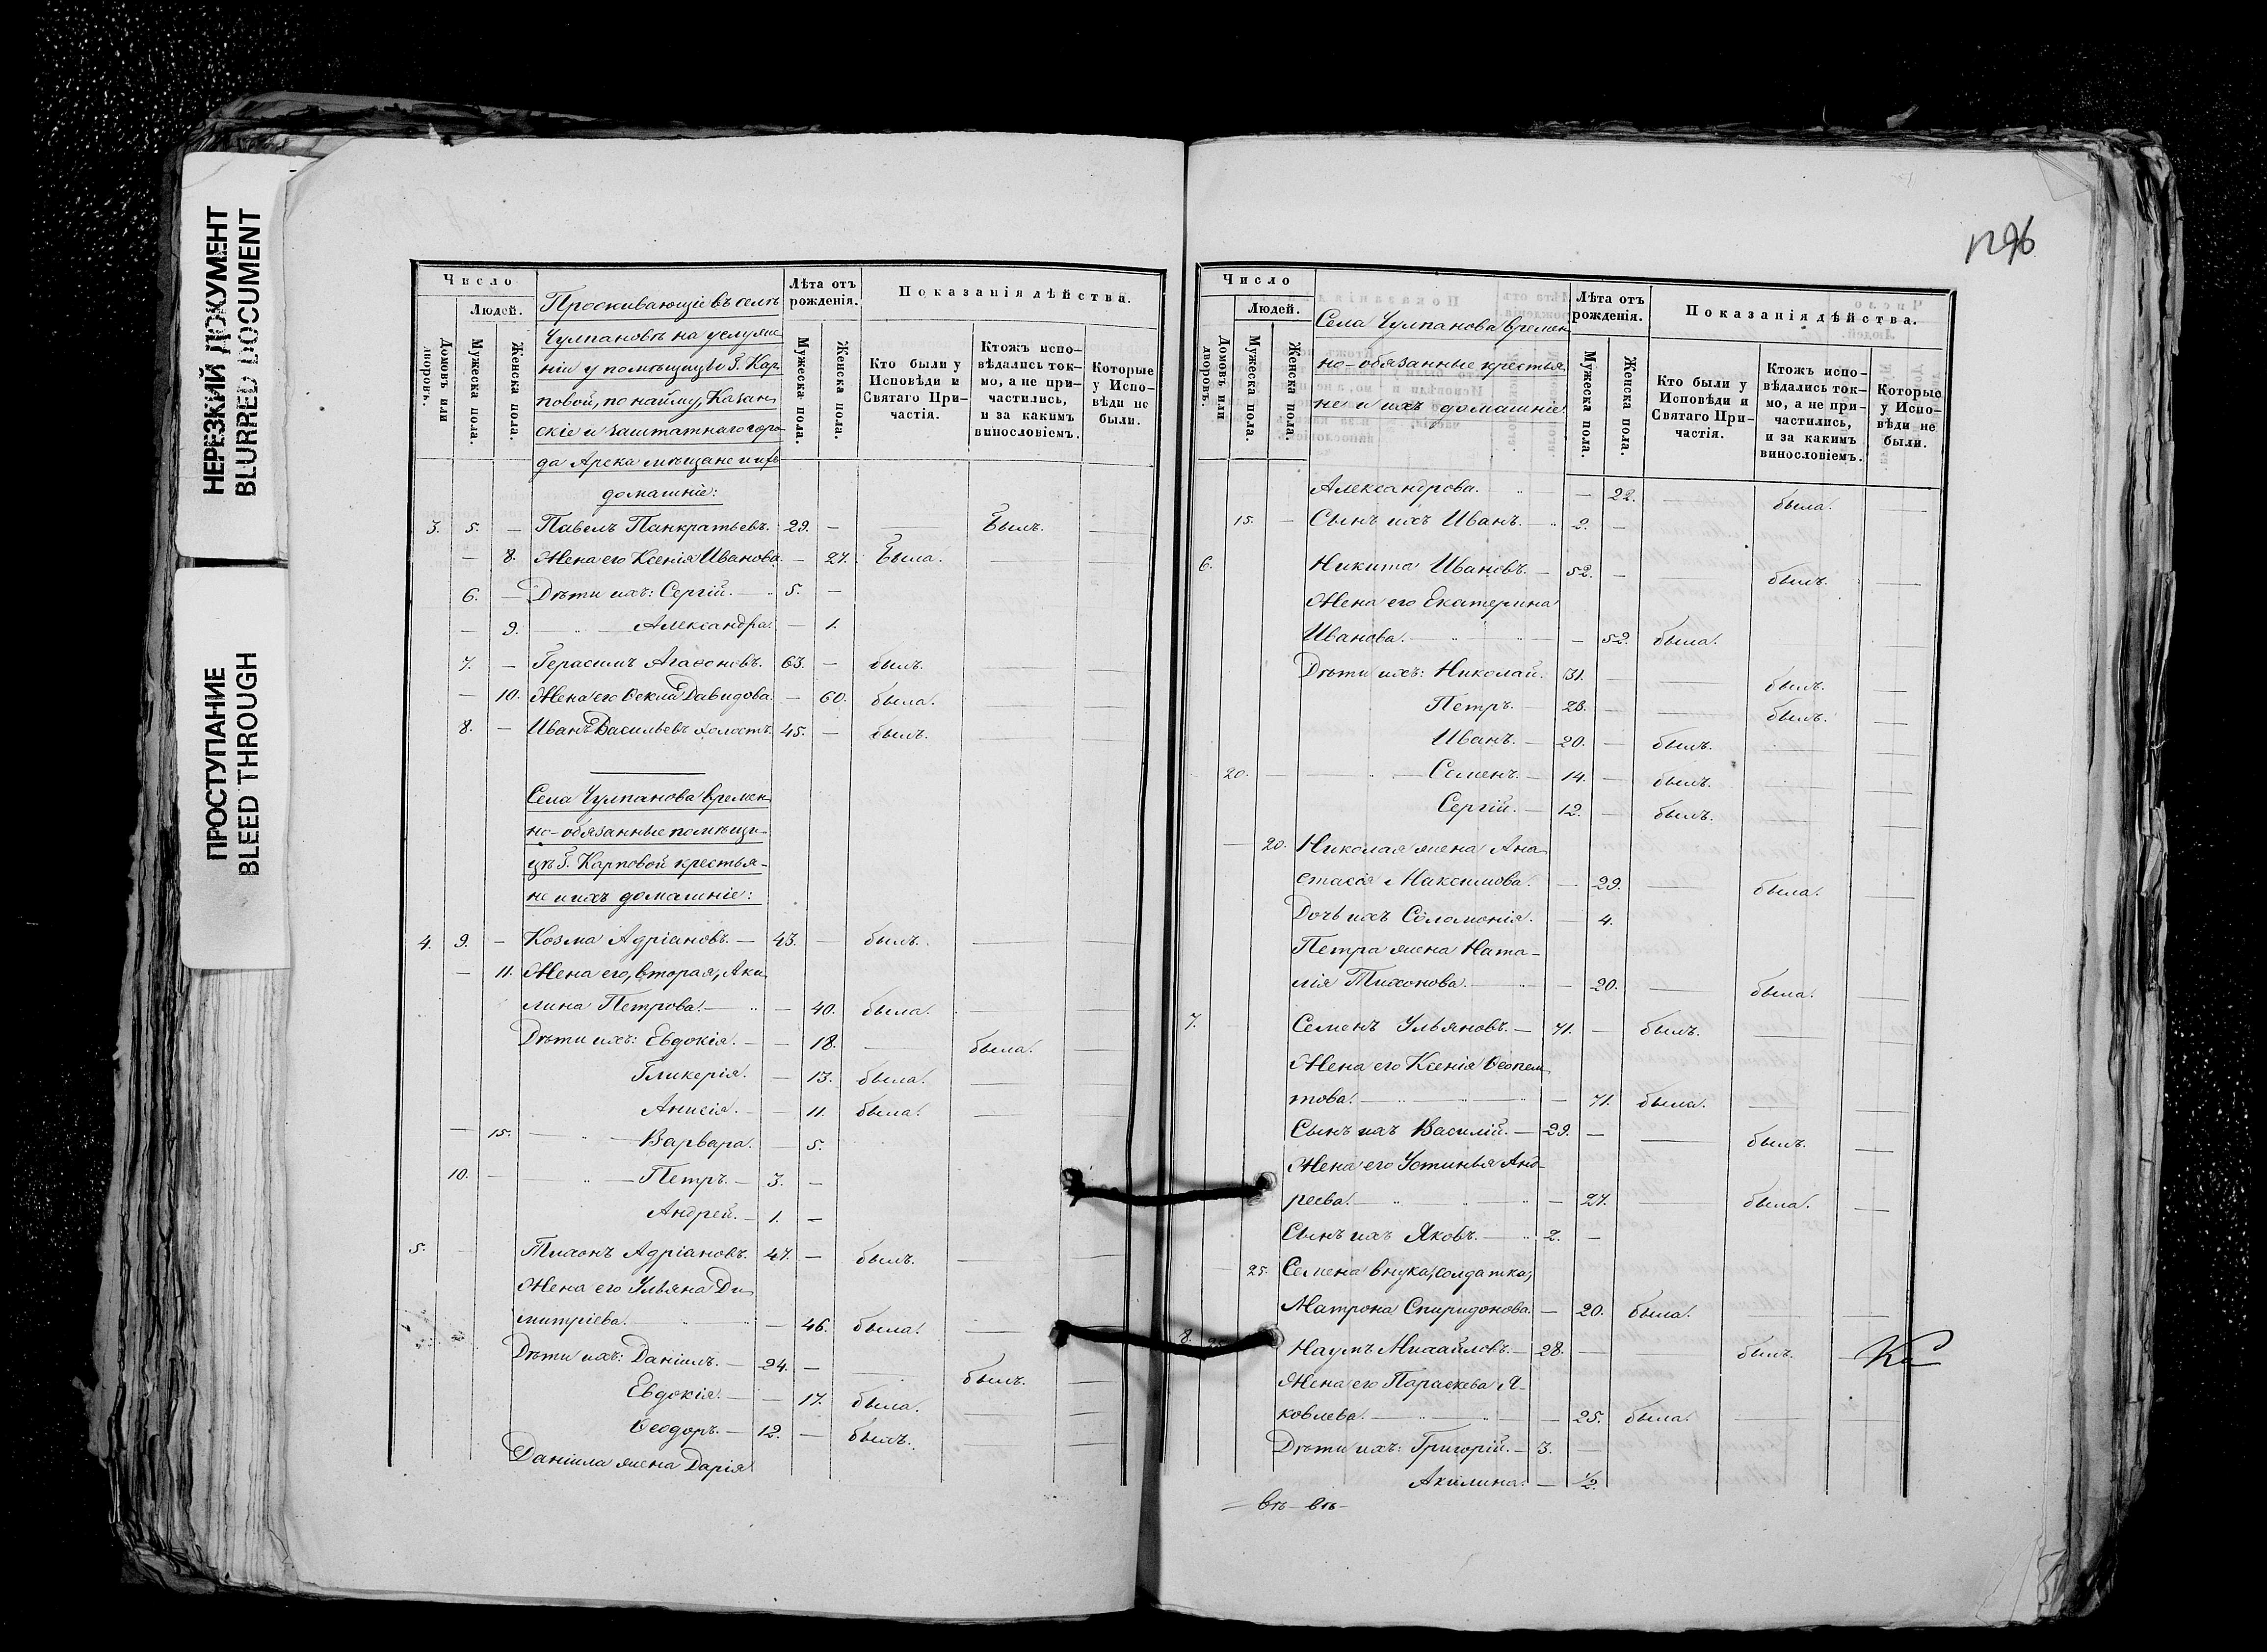 НЕРЕЗКИЙ ДОКУМЕНТ
BLURRED DOCUMENT
ПРОСТУПАНИЕ
BLEED THROUGH
Число
Людей.
Домовъ или дворовъ.
Мужеска пола.
Женска пола.
Проживающіе въ селѣ
Чулпановѣ на услуже
ніи у помѣщицы Г. Кар
повой, по найму, Казан
скіе и заштатнаго горо
да Арска мѣщане и ихъ
домашніе:
Лѣта отъ рожденія.
Мужеска пола.
Женска пола.
Показанія дѣйства.
Кто были у Исповѣди и Святаго Причастія.
Ктожъ исповѣдались токмо, а не причастились, и за какимъ винословіемъ.
Которые у Исповѣди не были.
3. 5. — Павелъ Панкратьевъ. 29. — — Былъ. —
— 8. Жена его Ксенія Иванова. — 27. Была. — —
6. — Дѣти ихъ: Сергій. — 5. —
— 9. — Александра. — 1.
7. — Герасимъ Агаѳоновъ. 63. — былъ. — —
— 10. Жена его Ѳекла Давидова. — 60. была. — —
8. — Иванъ Васильевъ холостъ. 45. — былъ. — —
Села Чулпанова времен
но-обязанные помѣщи-
цѣ Г. Карповой крестья-
не и ихъ домашніе:
4. 9. — Козма Адріановъ. — 43. — былъ. — —
— 11. Жена его, вторая, Аки
лина Петрова. — — 40. была. — —
Дѣти ихъ: Евдокія. — — 18. — была. —
Гликерія. — 13. была. — —
Анисія. — — 11. была. — —
— 15. — Варвара. — 5.
10. — — Петръ. — 3. —
Андрей. — 1. —
5. Тихонъ Адріановъ. 47. — былъ. — —
Жена его Ульяна Ди
митріева. — 46. была. — —
Дѣти ихъ: Даніилъ. — 24. — — былъ. —
Евдокія. — — 17. была. — —
Ѳеодоръ. — 12. — былъ. — —
Даніила жена Дарія
1296
Число
Людей.
Домовъ или дворовъ.
Мужеска пола.
Женска пола.
Села Чулпанова времен
но-обязанные крестья
не и ихъ домашніе:
Лѣта отъ рожденія.
Мужеска пола.
Женска пола.
Показанія дѣйства.
Кто были у Исповѣди и Святаго Причастія.
Ктожъ исповѣдались токмо, а не причастились, и за какимъ винословіемъ.
Которые у Исповѣди не были.
Александрова. — — 22. — была. —
15. — Сынъ ихъ Иванъ. — 2. —
6. Никита Ивановъ. — 52. — — былъ. —
Жена его Екатерина
Иванова. — — 52. была. —
Дѣти ихъ: Николай. 31. — — былъ. —
Петръ. — 26. — — былъ. —
Иванъ. — 20. — былъ. —
20. — — Семенъ. — 14. — былъ. —
Сергій. — 12. — былъ. —
— 20. Николая жена Ана
стасія Максимова. — 29. — была. —
Дочь ихъ Соломонія. — 4.
Петра жена Ната-
лія Тихонова. — — 20. — была. —
7. Семенъ Ульяновъ. — 71. — былъ. — —
Жена его Ксенія Ѳеопем
това. — — 71. была. — —
Сынъ ихъ Василій. — 29. — — былъ. —
Жена его Устинья Анд-
реева. — — 27. — была. —
Сынъ ихъ Яковъ. — 2. —
— 25. Семена внука, солдатка,
Матрона Спиридонова. — 20. была. — —
8. Наумъ Михайловъ. — 28. — былъ. —
Жена его Параскева Я-
ковлева. — — 25. была. — —
Дѣти ихъ: Григорій. — 3. —
Акилина. — 1/2.